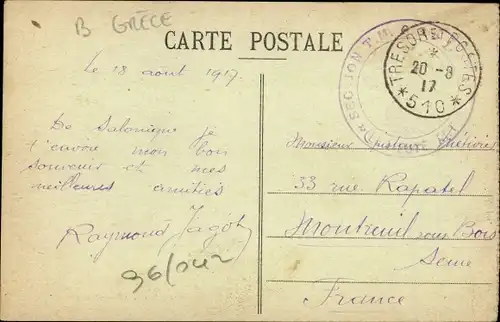 B GRÈCE
CARTE POSTALE
Le 18 août 1917
TRESOR ET POSTES
20-8
17
* 510 *
SECTION T.M.
De Salonique je
t'envoie mon bon
souvenir et mes
meilleures amitiés
Raymond Jagot
96/042
Monsieur Gustave
33 rue Rapatel
Montreuil sous Bois
Seine
France